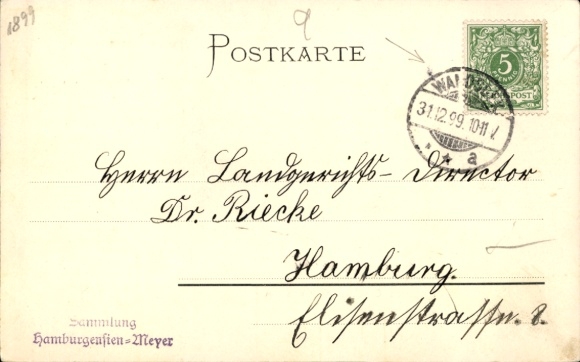 1899
9
POSTKARTE
5
PFENNIG
REICHSPOST
WANDSBEK
31.12.99.10-11 V.
* * a
Herrn Landgerichts-Director
Dr. Riecke
Hamburg.
Elisenstrasse. 8.
Sammlung
Hamburgensien=Meyer